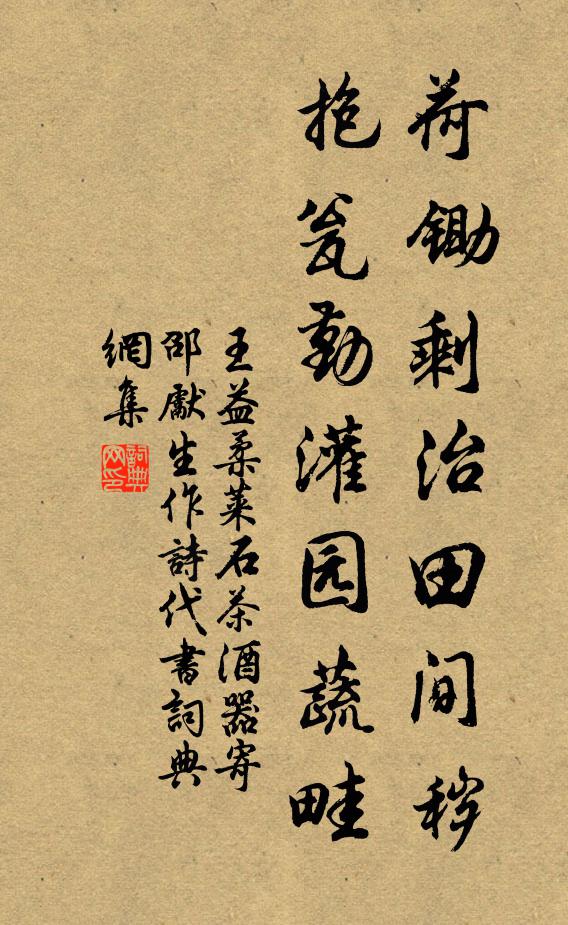 荷鋤剩治田间秽
抱瓮勤灌园蔬畦
王益柔莱石茶酒器寄
邵獻生作詩代書詞典
網集
詞典
网印